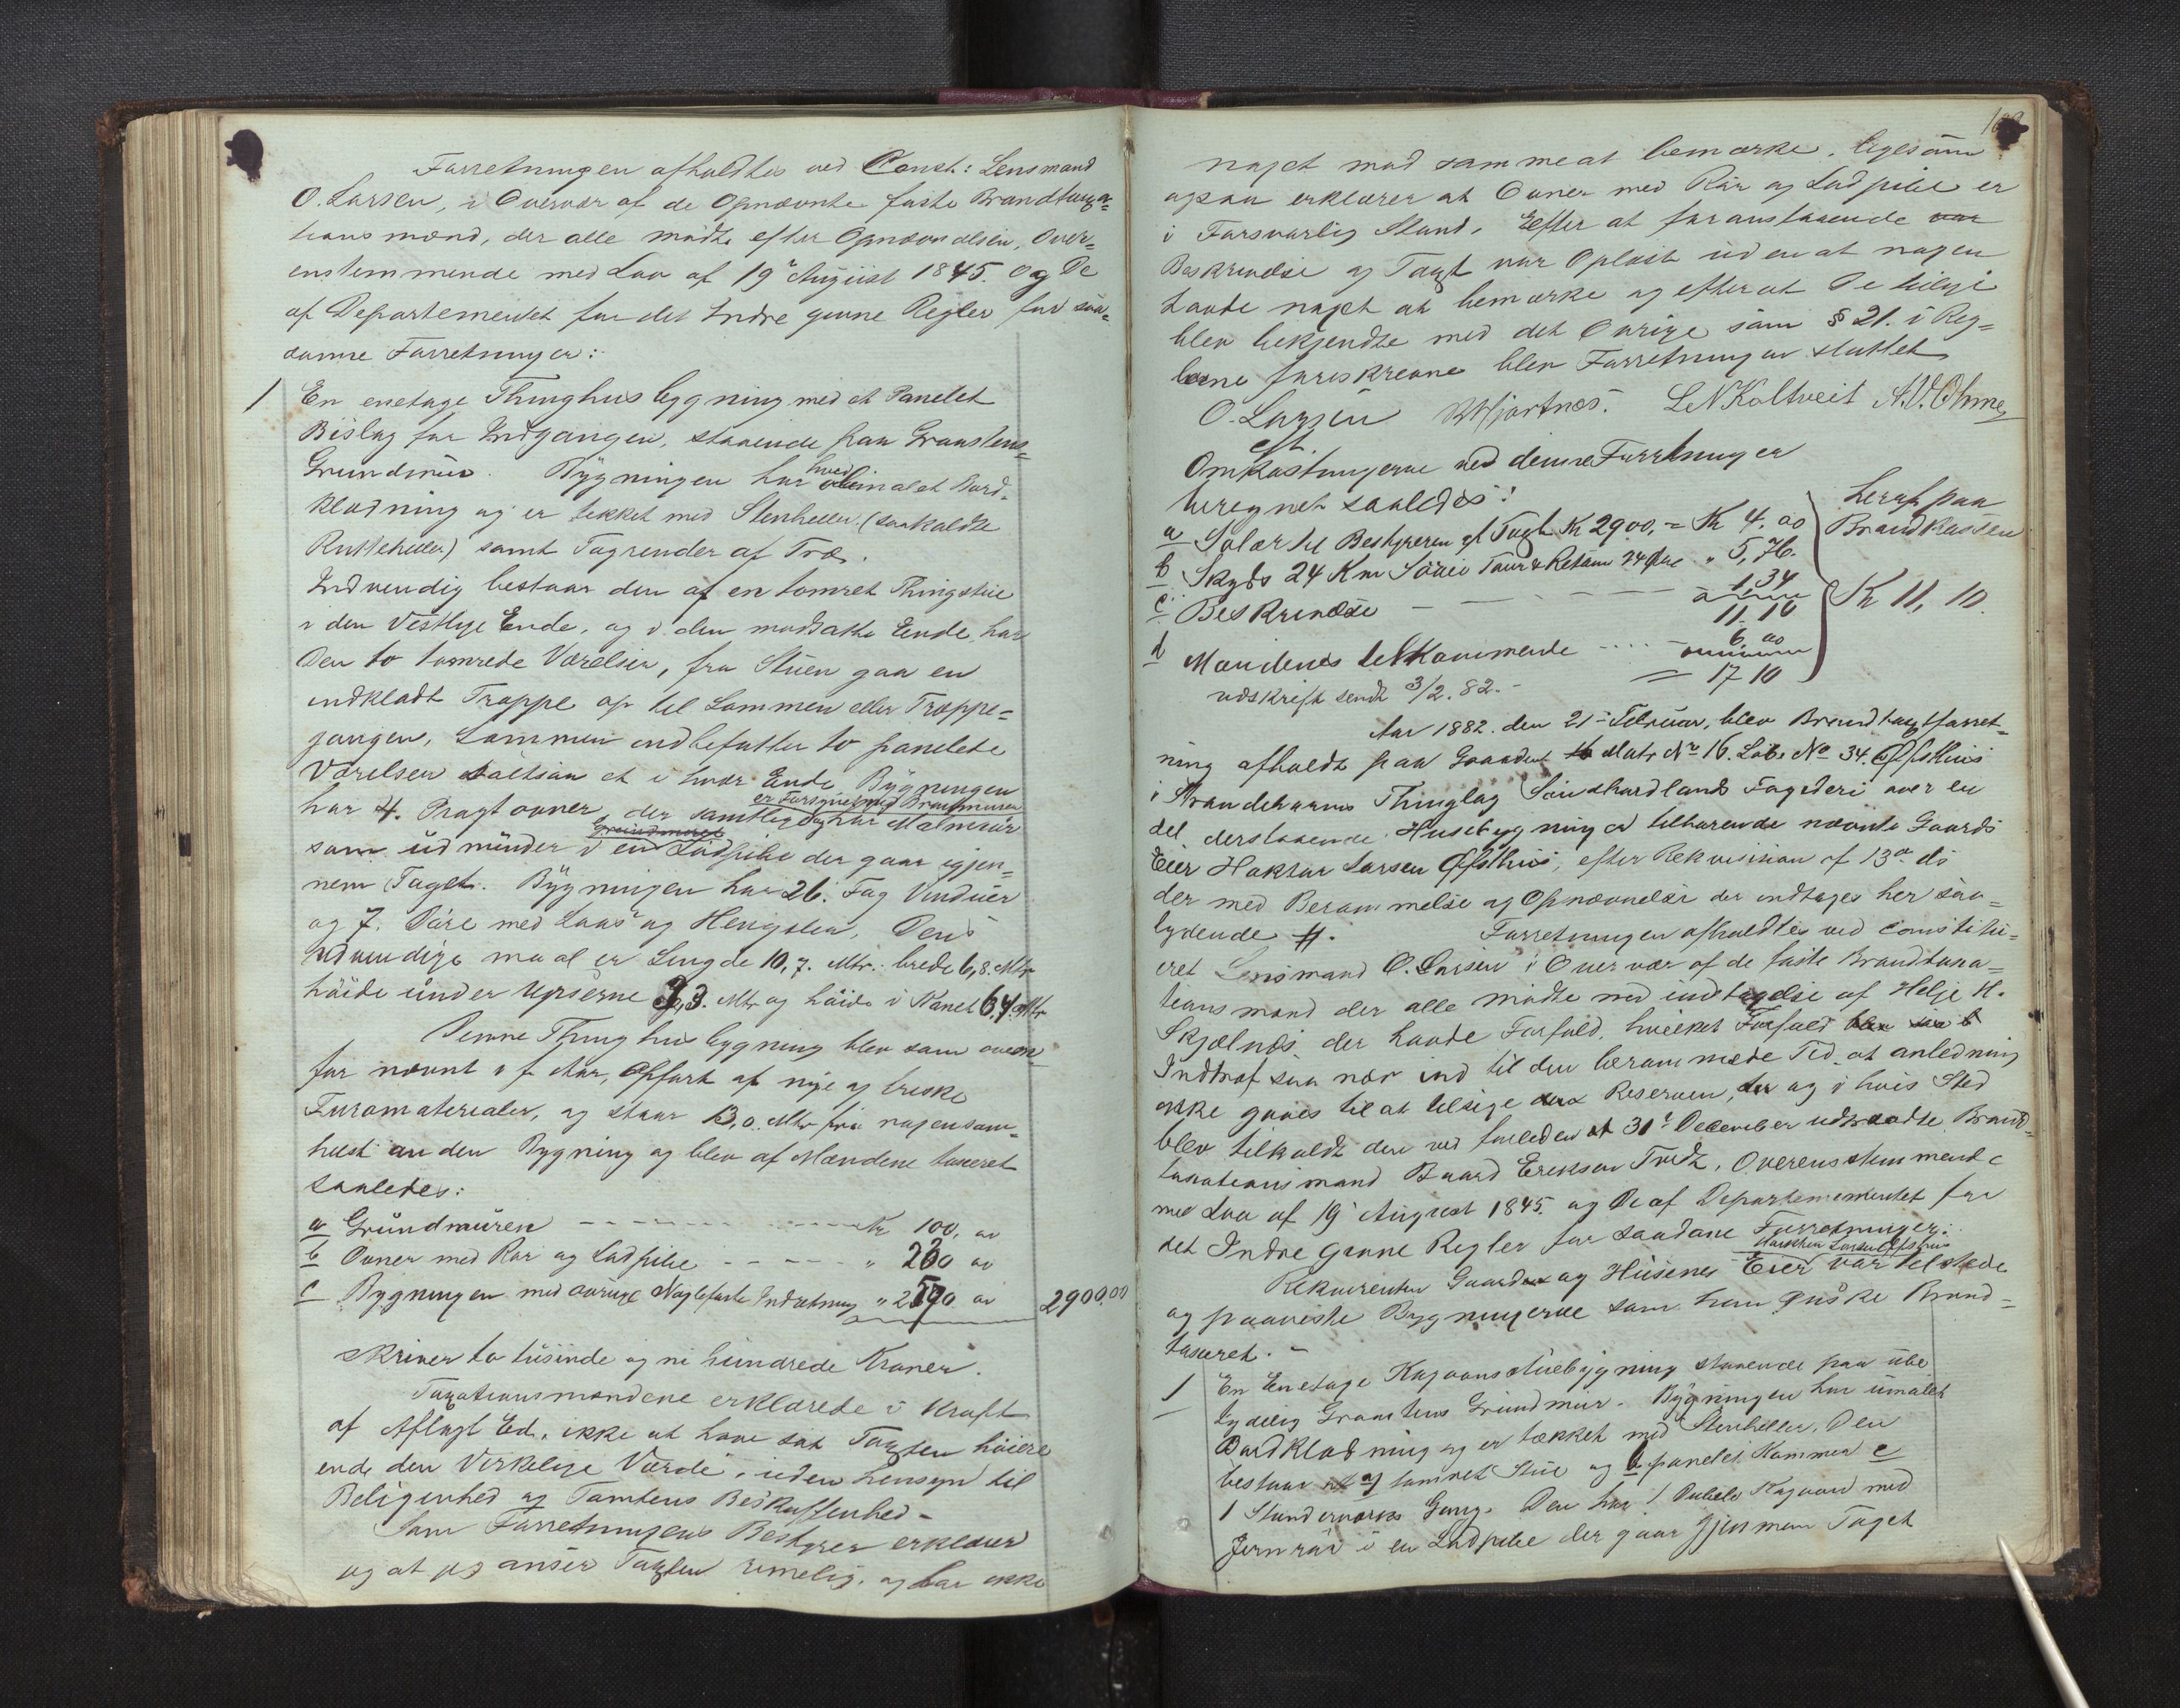 Forretningen afholdtes ved Const: Lensmand
O. Larsen, i Overvær af de Opnævnte faste Brandtaxa=
tionsmænd, der alle mødte efter Opnævnelsen, Over=
enstemmende med Lov af 19de August 1845. og De
af Departementet for det Indre givne Regler for saa=
danne Forretninger:
1 En enetage Thinghusbygning med et Panelet
Bislag for Indgangen, staaende paa Graastens
Grundmur. Bygningen har hvid malet Bord=
klædning og er tekket med Stenheller (saakaldte
Rutteheller) samt Tagrender af Træ.
Indvendig bestaar den af en tømret Thingstue
i den Vestlige Ende, og i den modsatte Ende har
Den to tømrede Værelser, fra Stuen gaa en
indklædt Trappe op til Lemmen eller Trappe=
gangen, Lemmen indbefatter to panelete
Værelser altsaa et i hver Ende Bygningen
er Forsynet med Brandmure
har 4. Pragt ovner, der samtlige har Malmrør
som udmunder i en Ladpibe der gaar igjen=
nem Taget. Bygningen har 26. Fag Vinduer
og 7. Døre med Laas og Hengsler. Dens
udvendige maal er Lengde 10,7. Mtr: brede 6,8. Mtr
høide under Upserne 3,3. Mtr og høide i Rønet 6,4. Mtr
Denne Thinghusbygning blev som oven
for nævnt i f Aar, Opført af nye og friske
Furumaterialer, og staar 13,0. Mtr fra nogensom=
helst anden Bygning og blev af Mændene taxeret
saaledes:
a Grundmuren Kr 100, 00
b Ovner med Rør og Ladpibe " 230 00
c Bygningen med øvrige Naglefaste Indretning " 2570 00 2900.00
skriver to tusinde og ni hundrede Kroner.
Taxationsmændene erklærede i kraft
af Aflagt Ed, ikke at have sat Taxten høiere
end den Virkelige Værdi, uden hensyn til
Beliggenhed og Tomtens Beskaffenhed -
Som Forretningens Bestyrer erklærer
og at jeg anser Taxten rimelig, og har ikke
noget mod samme at bemærke, ligesom
ogsaa erklærer at Ovner med Rør og Ladpibe er
i Forsvarlig Stand. Eefter at foranstaaende
Beskrivelse og Taxt var Oplæst uden at nogen
havde noget at bemærke og efterat De tillige
blev bekjendte med det Øvrige som § 21. i Reg=
lerne foreskrevne blev Forretningen sluttet
O. Larsen Hjartnæs. L N Koltveit A. V. Ohme
cst.
Omkostningerne ved denne Forretninger
beregnet saaledes:
a Solær til Bestyreren af Taxt Kr 2900, = Kr 4. 00
b Skyds 24 Km Søvei Tour & Retour 24 Øre " 5,76.
c Beskrivelse 1,34
11.10
heraf paa
Brandkassen
Kr 11,10.
d Mændenes tilkommende 6. 00
= 17 10
udskrift sendt 3/2. 82. -
Aar 1882. den 21 Februar, blev Brandtaxtforret=
ning afholdt paa Gaarden Matr No 16. Løb. No 34. Øfsthus
i Strandebarms Thinglag Søndhordlands Fogderi over en
del derstaaende Husebygninger tilhørende nævnte Gaards
Eier Haktor Larsen Øfsthus, efter Rekvisision af 13de ds
der med Berammelse og Opnævnelse der indtages her saa=
lydende #.
Forretningen afholdtes ved constitu=
eret Lensmand O. Larsen i Overvær af de faste Brandtaxa=
tionsmænd der alle mødte med undtagelse af Helje H.
Skjelnæs der havde Forfald, hvilket Forfald
Indtraf saa nær ind til den berammede Tid at anledning
ikke gaves til at tilsige Reserven, og i hvis Sted
blev tilkaldt den ved forleden 31te December udtraadte Brand=
taxationsmand Baard Erikson Tvedt. Overensstemmende
med Lov af 19 August 1845. og De af Departementet for
det Indre givne Regler for saadane Forretninger:
Rekvirenten Gaardens og Husenes Eier var tilstede
og paaviste Bygningerne som han ønske Brand=
taxeret. -
1 En Enetage Røgovnsstuebygning staaende paa ube
tydelig Graastens Grundmur. Bygningen har umalet
Bordklædning og er tækket med Stenheller. Den
bestaar af a) tømret Stue og b panelet Kammer c
1 Stenderværks Gang. Den har 1 Dubelt Kagovn med
Jernrør i en Ladpibe der gaar Gjennem Taget